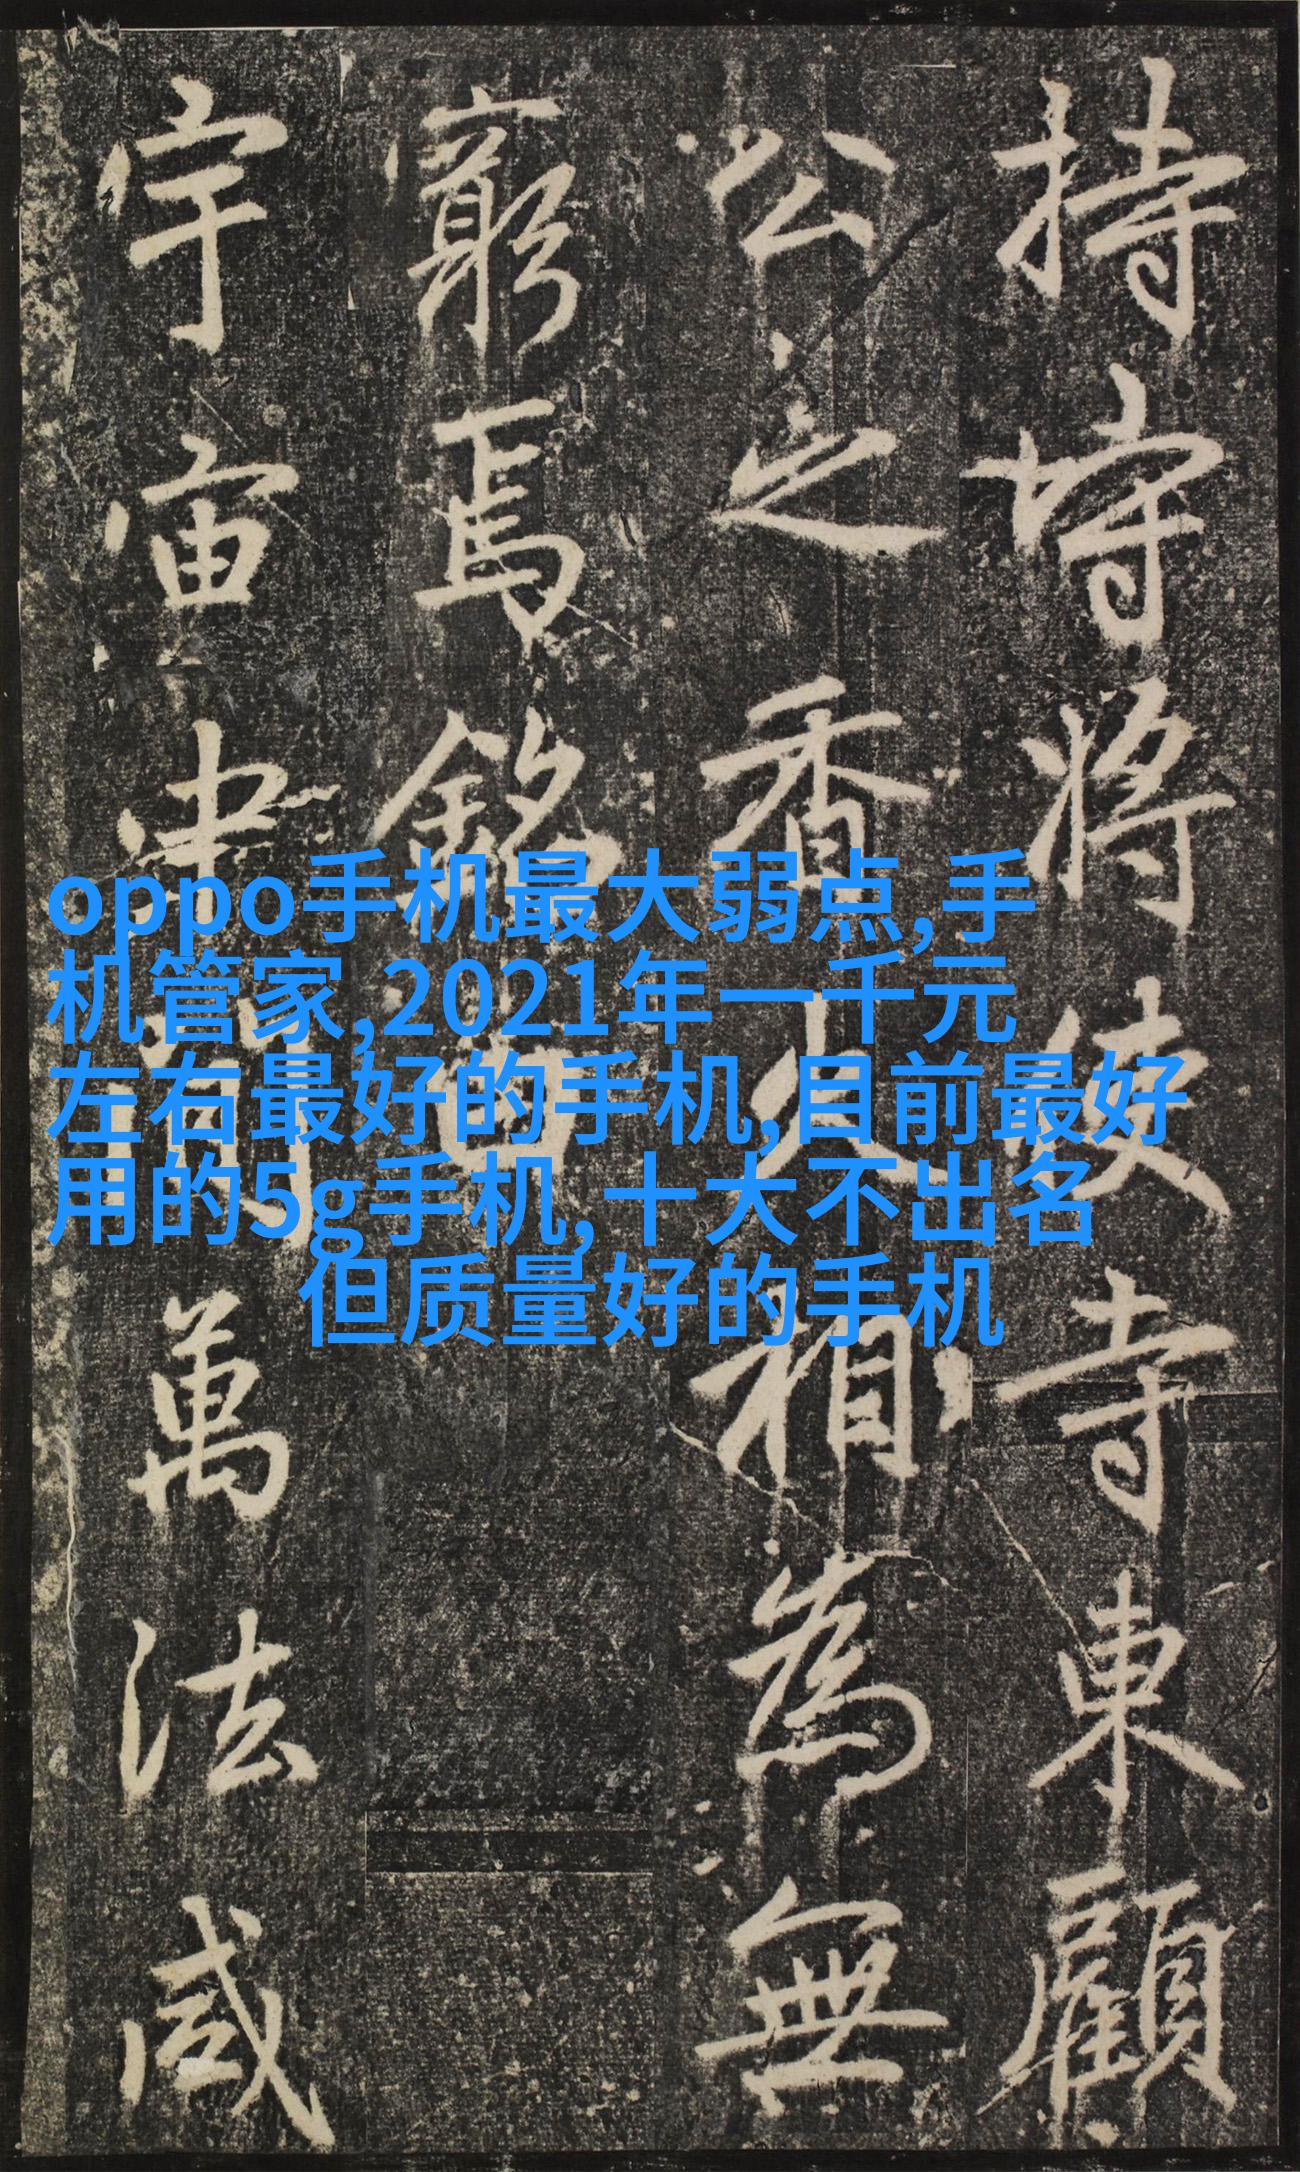 持將寺東顧
公之香火相為無
窮焉銘曰
宇宙萬法咸
oppo手机最大弱点,手
机管家,2021年一千元
左右最好的手机,目前最好
用的5g手机,十大不出名
但质量好的手机